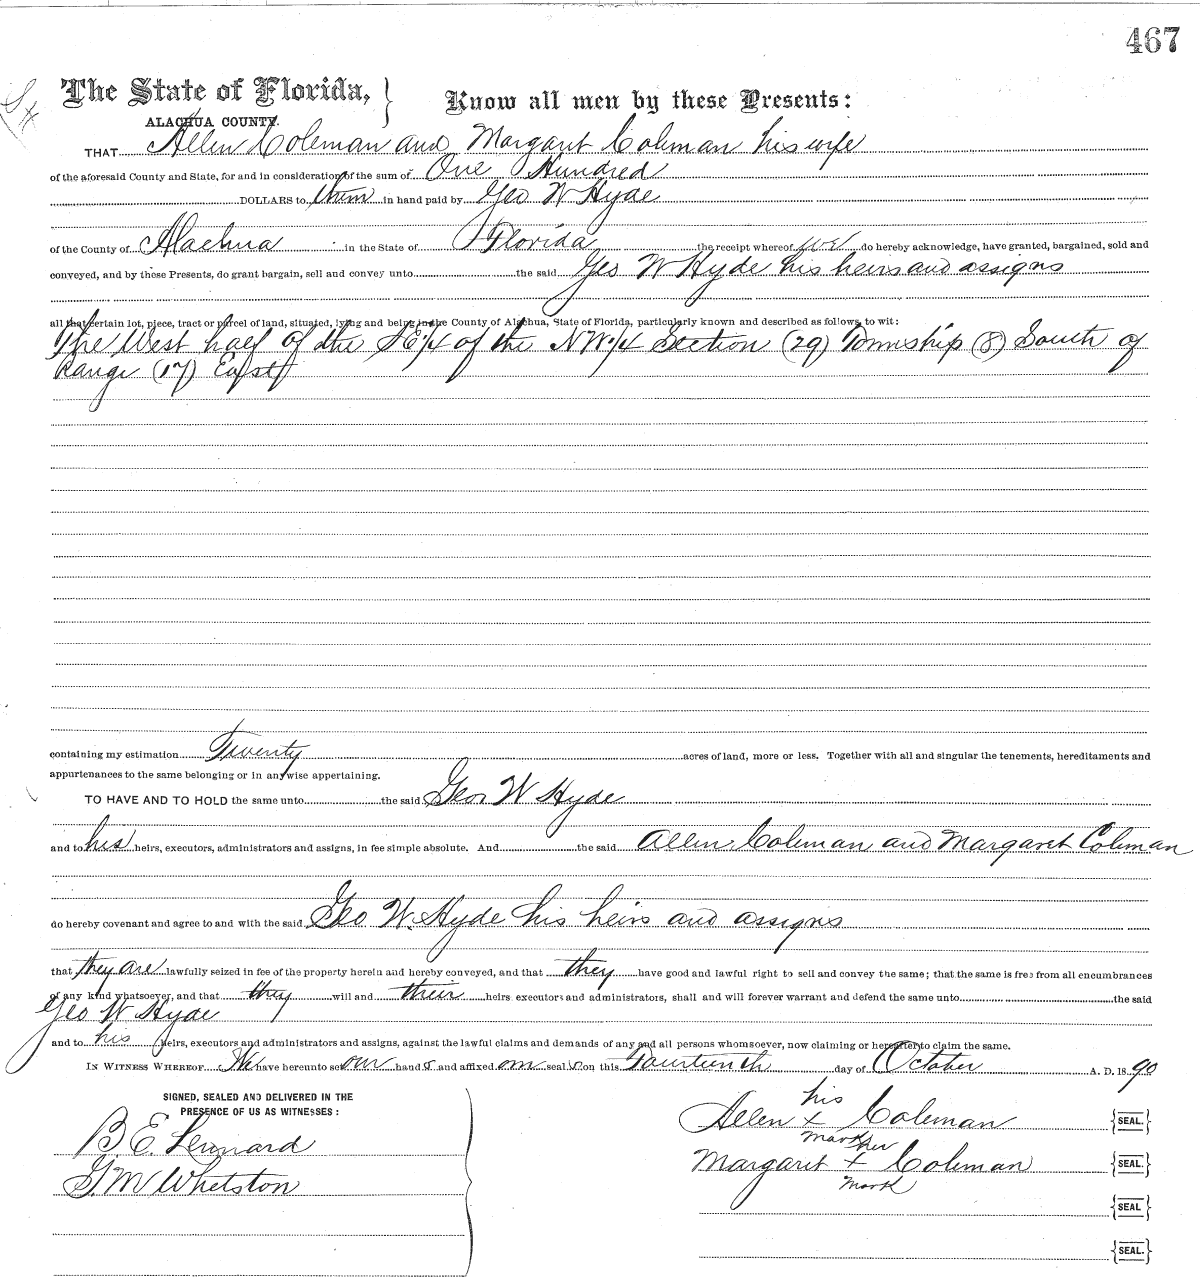 467
The State of Florida, } Know all men by these Presents:
ALACHUA COUNTY.
THAT Allen Coleman and Margaret Coleman his wife
of the aforesaid County and State, for and in consideration of the sum of One Hundred
DOLLARS to them in hand paid by Geo W Hyde
of the County of Alachua in the State of Florida the receipt whereof we do hereby acknowledge, have granted, bargained, sold and
conveyed, and by these Presents, do grant bargain, sell and convey unto the said Geo W Hyde his heirs and assigns
all that certain lot, piece, tract or parcel of land, situated, lying and being in the County of Alachua, State of Florida, particularly known and described as follows, to wit:
The West half of the SE 1/4 of the NW 1/4 Section (29) Township (8) South of
Range (17) East
containing my estimation Twenty acres of land, more or less. Together with all and singular the tenements, hereditaments and
appurtenances to the same belonging or in anywise appertaining.
TO HAVE AND TO HOLD the same unto the said Geo W Hyde
and to his heirs, executors, administrators and assigns, in fee simple absolute. And the said Allen Coleman and Margaret Coleman
do hereby covenant and agree to and with the said Geo W. Hyde his heirs and assigns
that they are lawfully seized in fee of the property herein and hereby conveyed, and that they have good and lawful right to sell and convey the same; that the same is free from all encumbrances
of any kind whatsoever, and that they will and their heirs executors and administrators, shall and will forever warrant and defend the same unto the said
Geo W Hyde
and to his heirs, executors and administrators and assigns, against the lawful claims and demands of any and all persons whomsoever, now claiming or hereafter to claim the same.
IN WITNESS WHEREOF We have hereunto set our hands and affixed our seals on this Fourteenth day of October A. D. 1890
SIGNED, SEALED AND DELIVERED IN THE
PRESENCE OF US AS WITNESSES:
B. E. Lennard
G. M Whetston
his
Allen x Coleman {SEAL.}
mark
her
Margaret x Coleman {SEAL.}
mark
{SEAL}
{SEAL.}